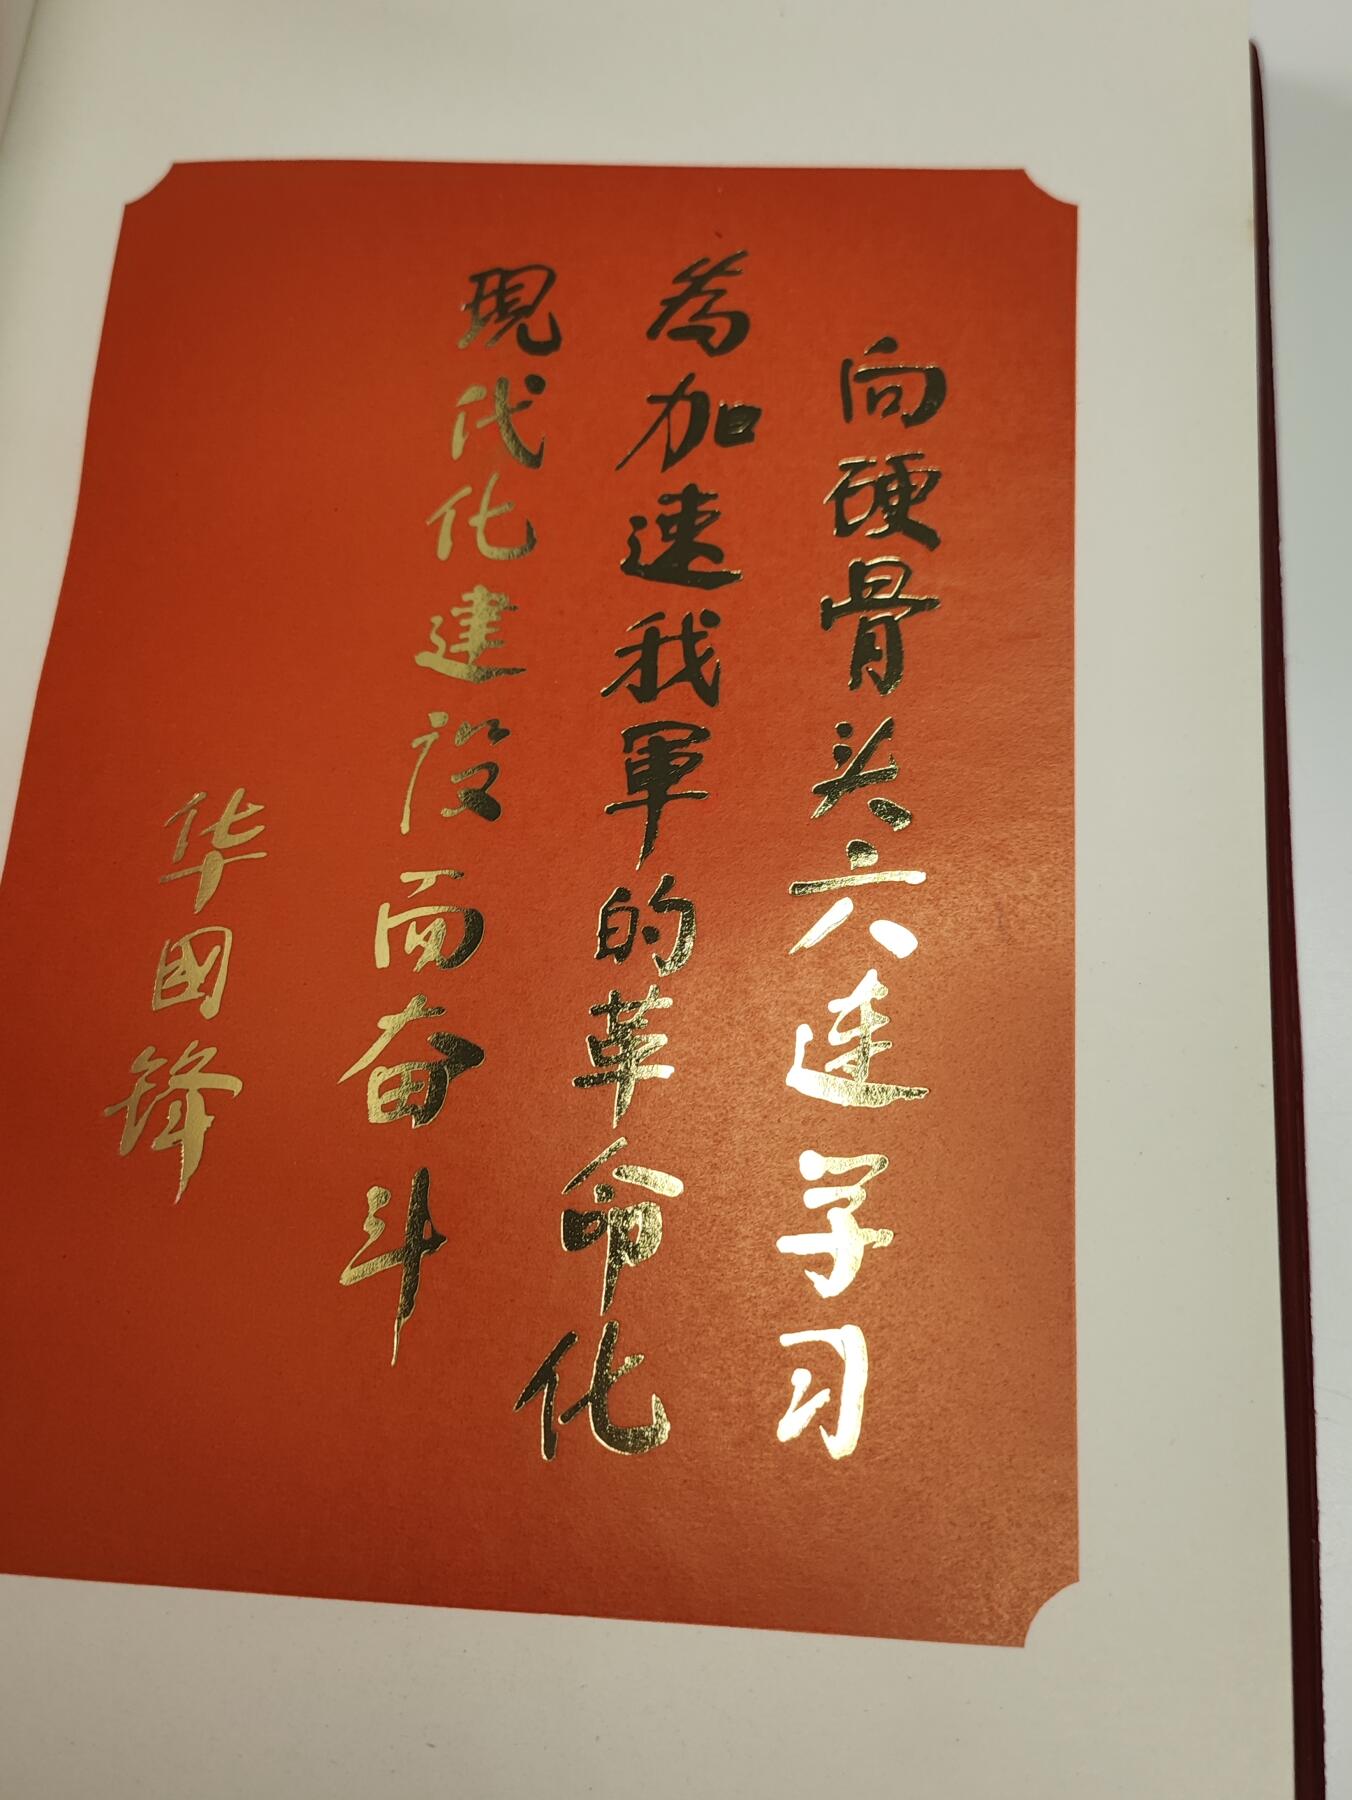 向硬骨头六连学习
為加速我軍的革命化
現代化建设而奋斗
华國锋